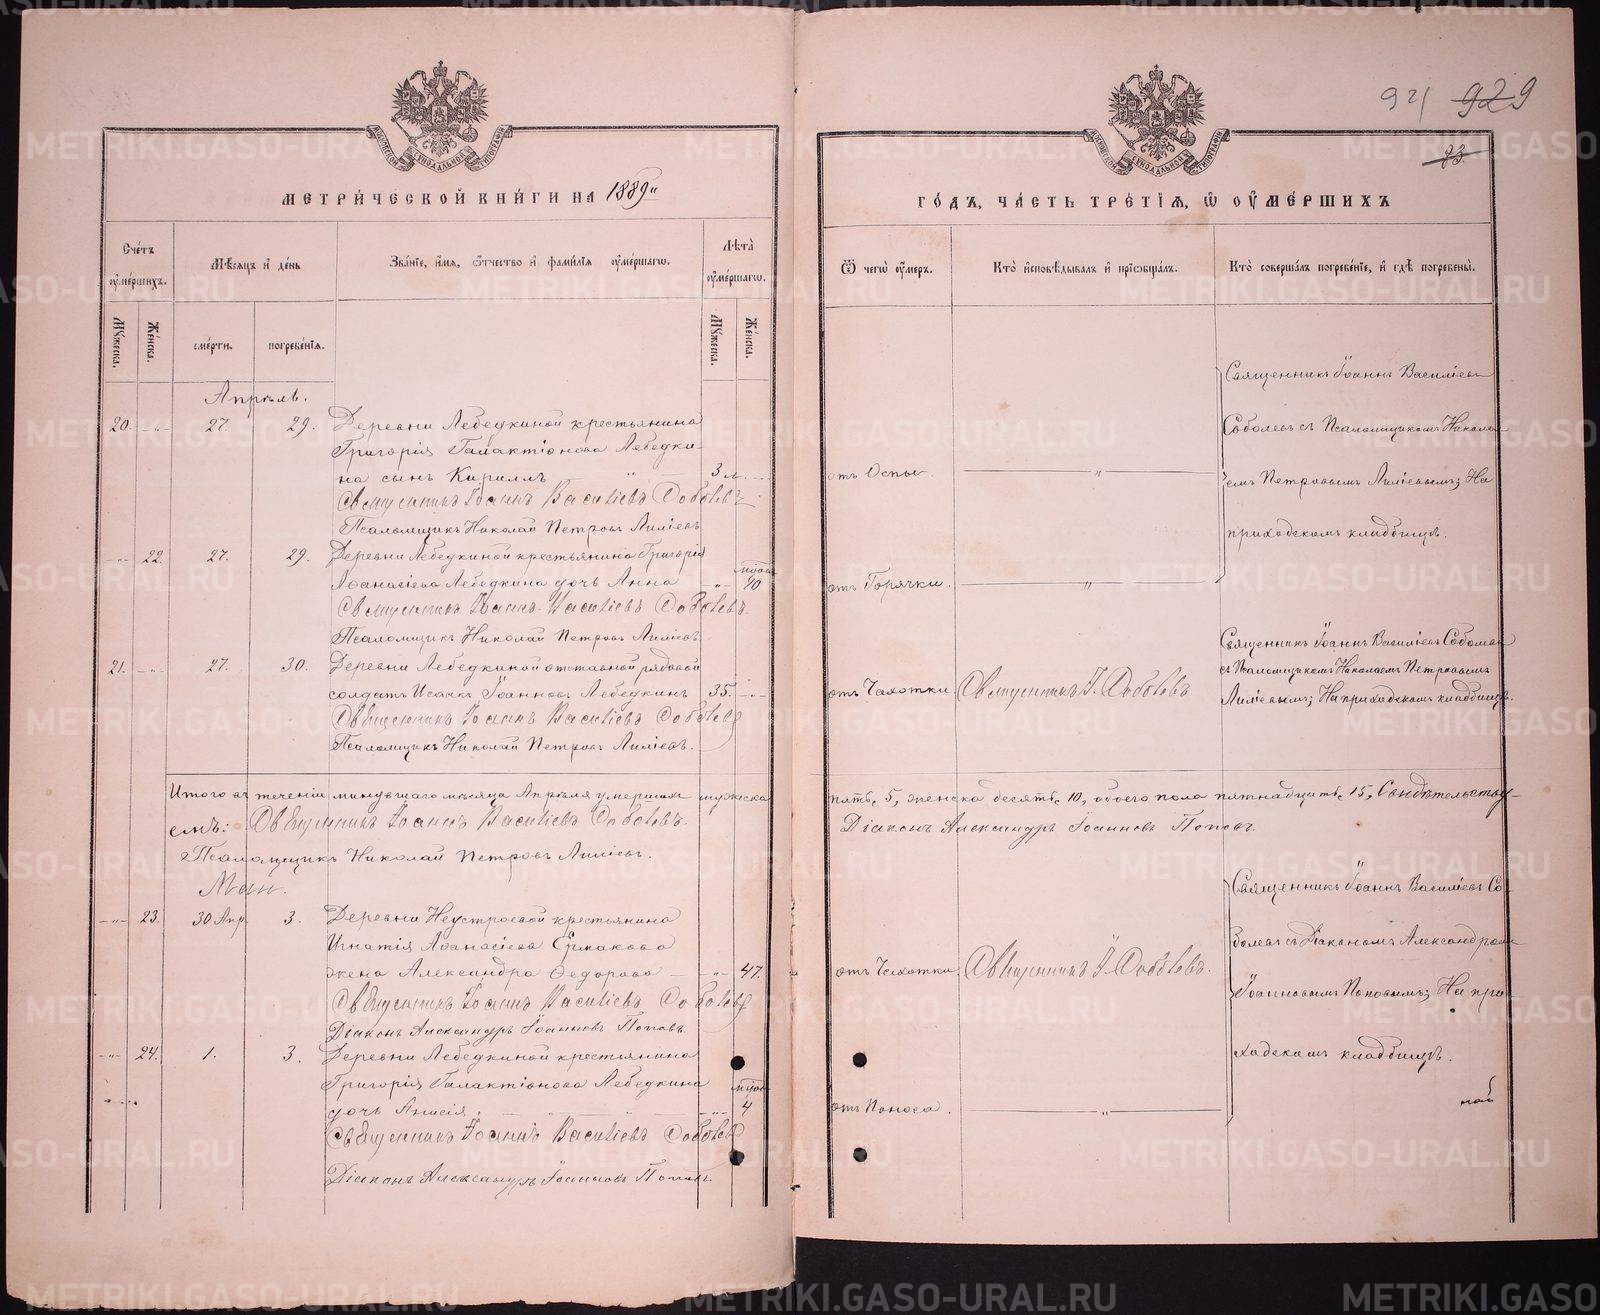 921 929
93.
МОСКОВСКОЙ СѴНОДАЛЬНОЙ ТИПОГРАФІИ
МОСКОВСКОЙ СѴНОДАЛЬНОЙ ТИПОГРАФІИ
МЕТРИ́ЧЕСКОЙ КНИ́ГИ НА 1889й
ГО́ДЪ, ЧА́СТЬ ТРЕ́ТІѦ, Ѽ ОУМЕ́РШИХЪ
Сче́тъ оуме́ршихъ.
Мѣ́сѧцъ и де́нь
Зва́нїе, и́мѧ, ѻ҆́тчество и фами́лїѧ оуме́ршагѡ.
Лѣ́та оуме́ршагѡ.
Ѿ чегѡ̀ оу́меръ.
Кто̀ исповѣ́дывалъ и прїѡбща́лъ.
Кто̀ соверша́лъ погребе́нїе, и гдѣ̀ погребены̀.
Мꙋ́жеска.
Же́нска.
сме́рти.
погребе́нїѧ.
Мꙋ́жеска.
Же́нска.
Апрѣль.
20. -„- 27. 29. Деревни Лебедкиной крестьянина
Григорія Галактіонова Лебедки-
на сынъ Кириллъ „ 3 л. -
Священникъ Іоаннъ Васильевъ Соболевъ
Псаломщикъ Николай Петровъ Лиліевъ
отъ Оспы. „
Священникъ Іоаннъ Василіевъ
Соболевъ съ Псаломщикомъ Никола-
емъ Петровымъ Лиліевымъ; На
приходскомъ кладбищѣ.
-„- 22. 27. 29. Деревни Лебедкиной крестьянина Григорія
Аѳанасіева Лебедкина дочь Анна -„- мѣсяц. 10
Священникъ Іоаннъ Васильевъ Соболевъ
Псаломщикъ Николай Петровъ Лиліевъ
отъ Горячки. „
21. -„- 27. 30. Деревни Лебедкиной отставной рядовой
солдатъ Исаакъ Іоанновъ Лебедкинъ 35. -
Священникъ Іоаннъ Васильевъ Соболевъ
Псаломщикъ Николай Петровъ Лиліевъ.
отъ Чахотки Священникъ І. Соболевъ
Священникъ Іоаннъ Василіевъ Соболевъ
съ Псаломщикомъ Николаемъ Петровымъ
Лиліевымъ; На приходскомъ кладбищѣ.
Итого въ теченіи минувшаго мѣсяца Апрѣля умершихъ мужеска
пять, 5, женска десять, 10, обоего пола пятнадцать, 15, Свидѣтельству-
емъ: Священникъ Іоаннъ Васильевъ Соболевъ.
Діаконъ Александръ Іоанновъ Поповъ.
Псаломщикъ Николай Петровъ Лиліевъ.
Май.
-„- 23. 30 Апр. 3. Деревни Неустроевой крестьянина
Игнатія Аѳанасіева Ермакова
жена Александра Ѳедорова -„- 47.
Священникъ Іоаннъ Васильевъ Соболевъ
Діаконъ Александръ Іоанновъ Поповъ.
отъ Чахотки. Священникъ І. Соболевъ.
Священникъ Іоаннъ Василіевъ Со-
болевъ съ Діакономъ Александромъ
Іоанновымъ Поповымъ; На при-
ходскомъ кладбищѣ.
-„- 24. 1. 3. Деревни Лебедкиной крестьянина
Григорія Галактіонова Лебедкина
дочь Анисія. -„- мѣсяц. 4
Священникъ Іоаннъ Васильевъ Соболевъ
Діаконъ Александръ Іоанновъ Поповъ.
отъ Поноса. „
METRIKI.GASO-URAL.RU